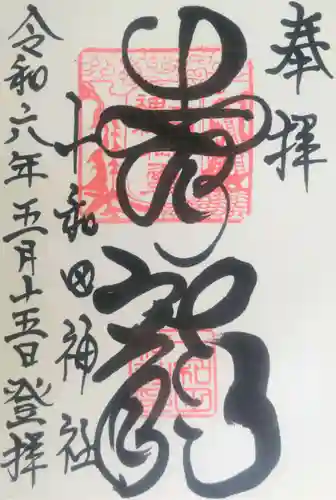 奉拝
青龍
十和田神社
令和六年五月十五日登拝